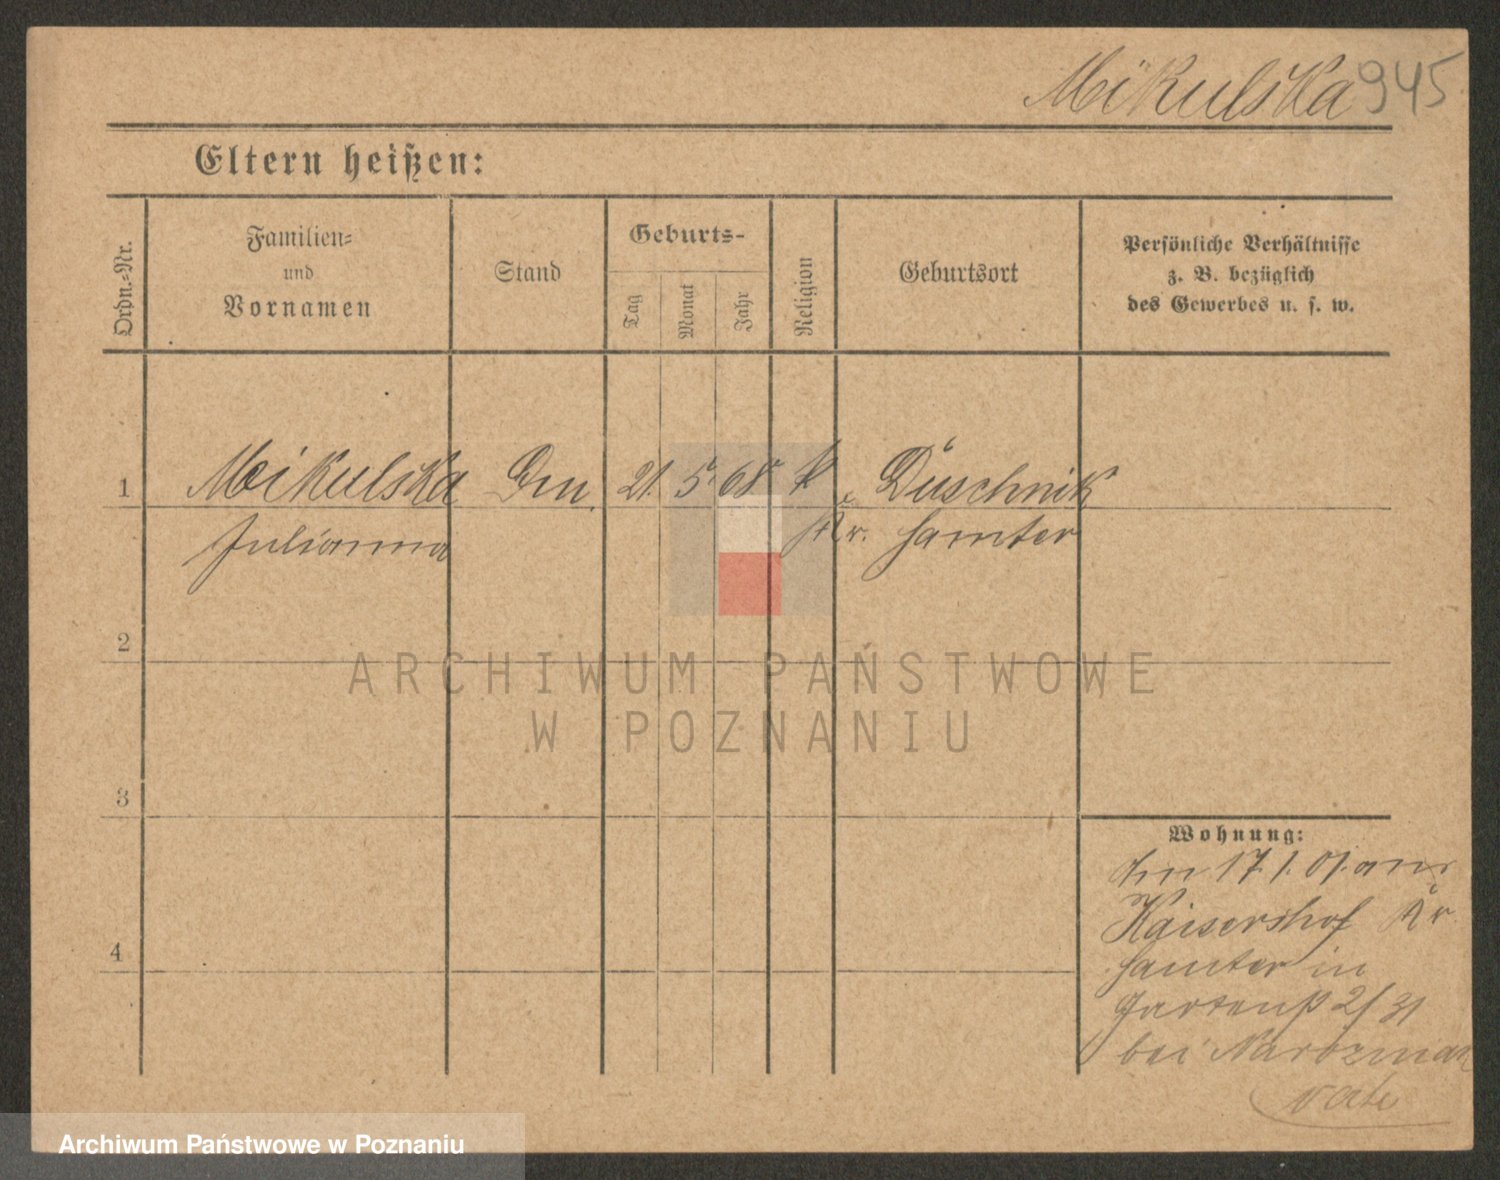 Mikulska 945
Eltern heißen:
Ordn.-Nr.
Familien-
und
Vornamen
Stand
Geburts-
Tag
Monat
Jahr
Religion
Geburtsort
Persönliche Verhältnisse
z. B. bezüglich
des Gewerbes u. s. w.
1 Mikulska 21. 5. 68 k Duschnik
Julianna Kr. Samter
2
3
4
Wohnung:
17.1.01. aus
Kaisershof Kr
Samter in
Gartenst 2/31
bei
ARCHIWUM PAŃSTWOWE
W POZNANIU
Archiwum Państwowe w Poznaniu